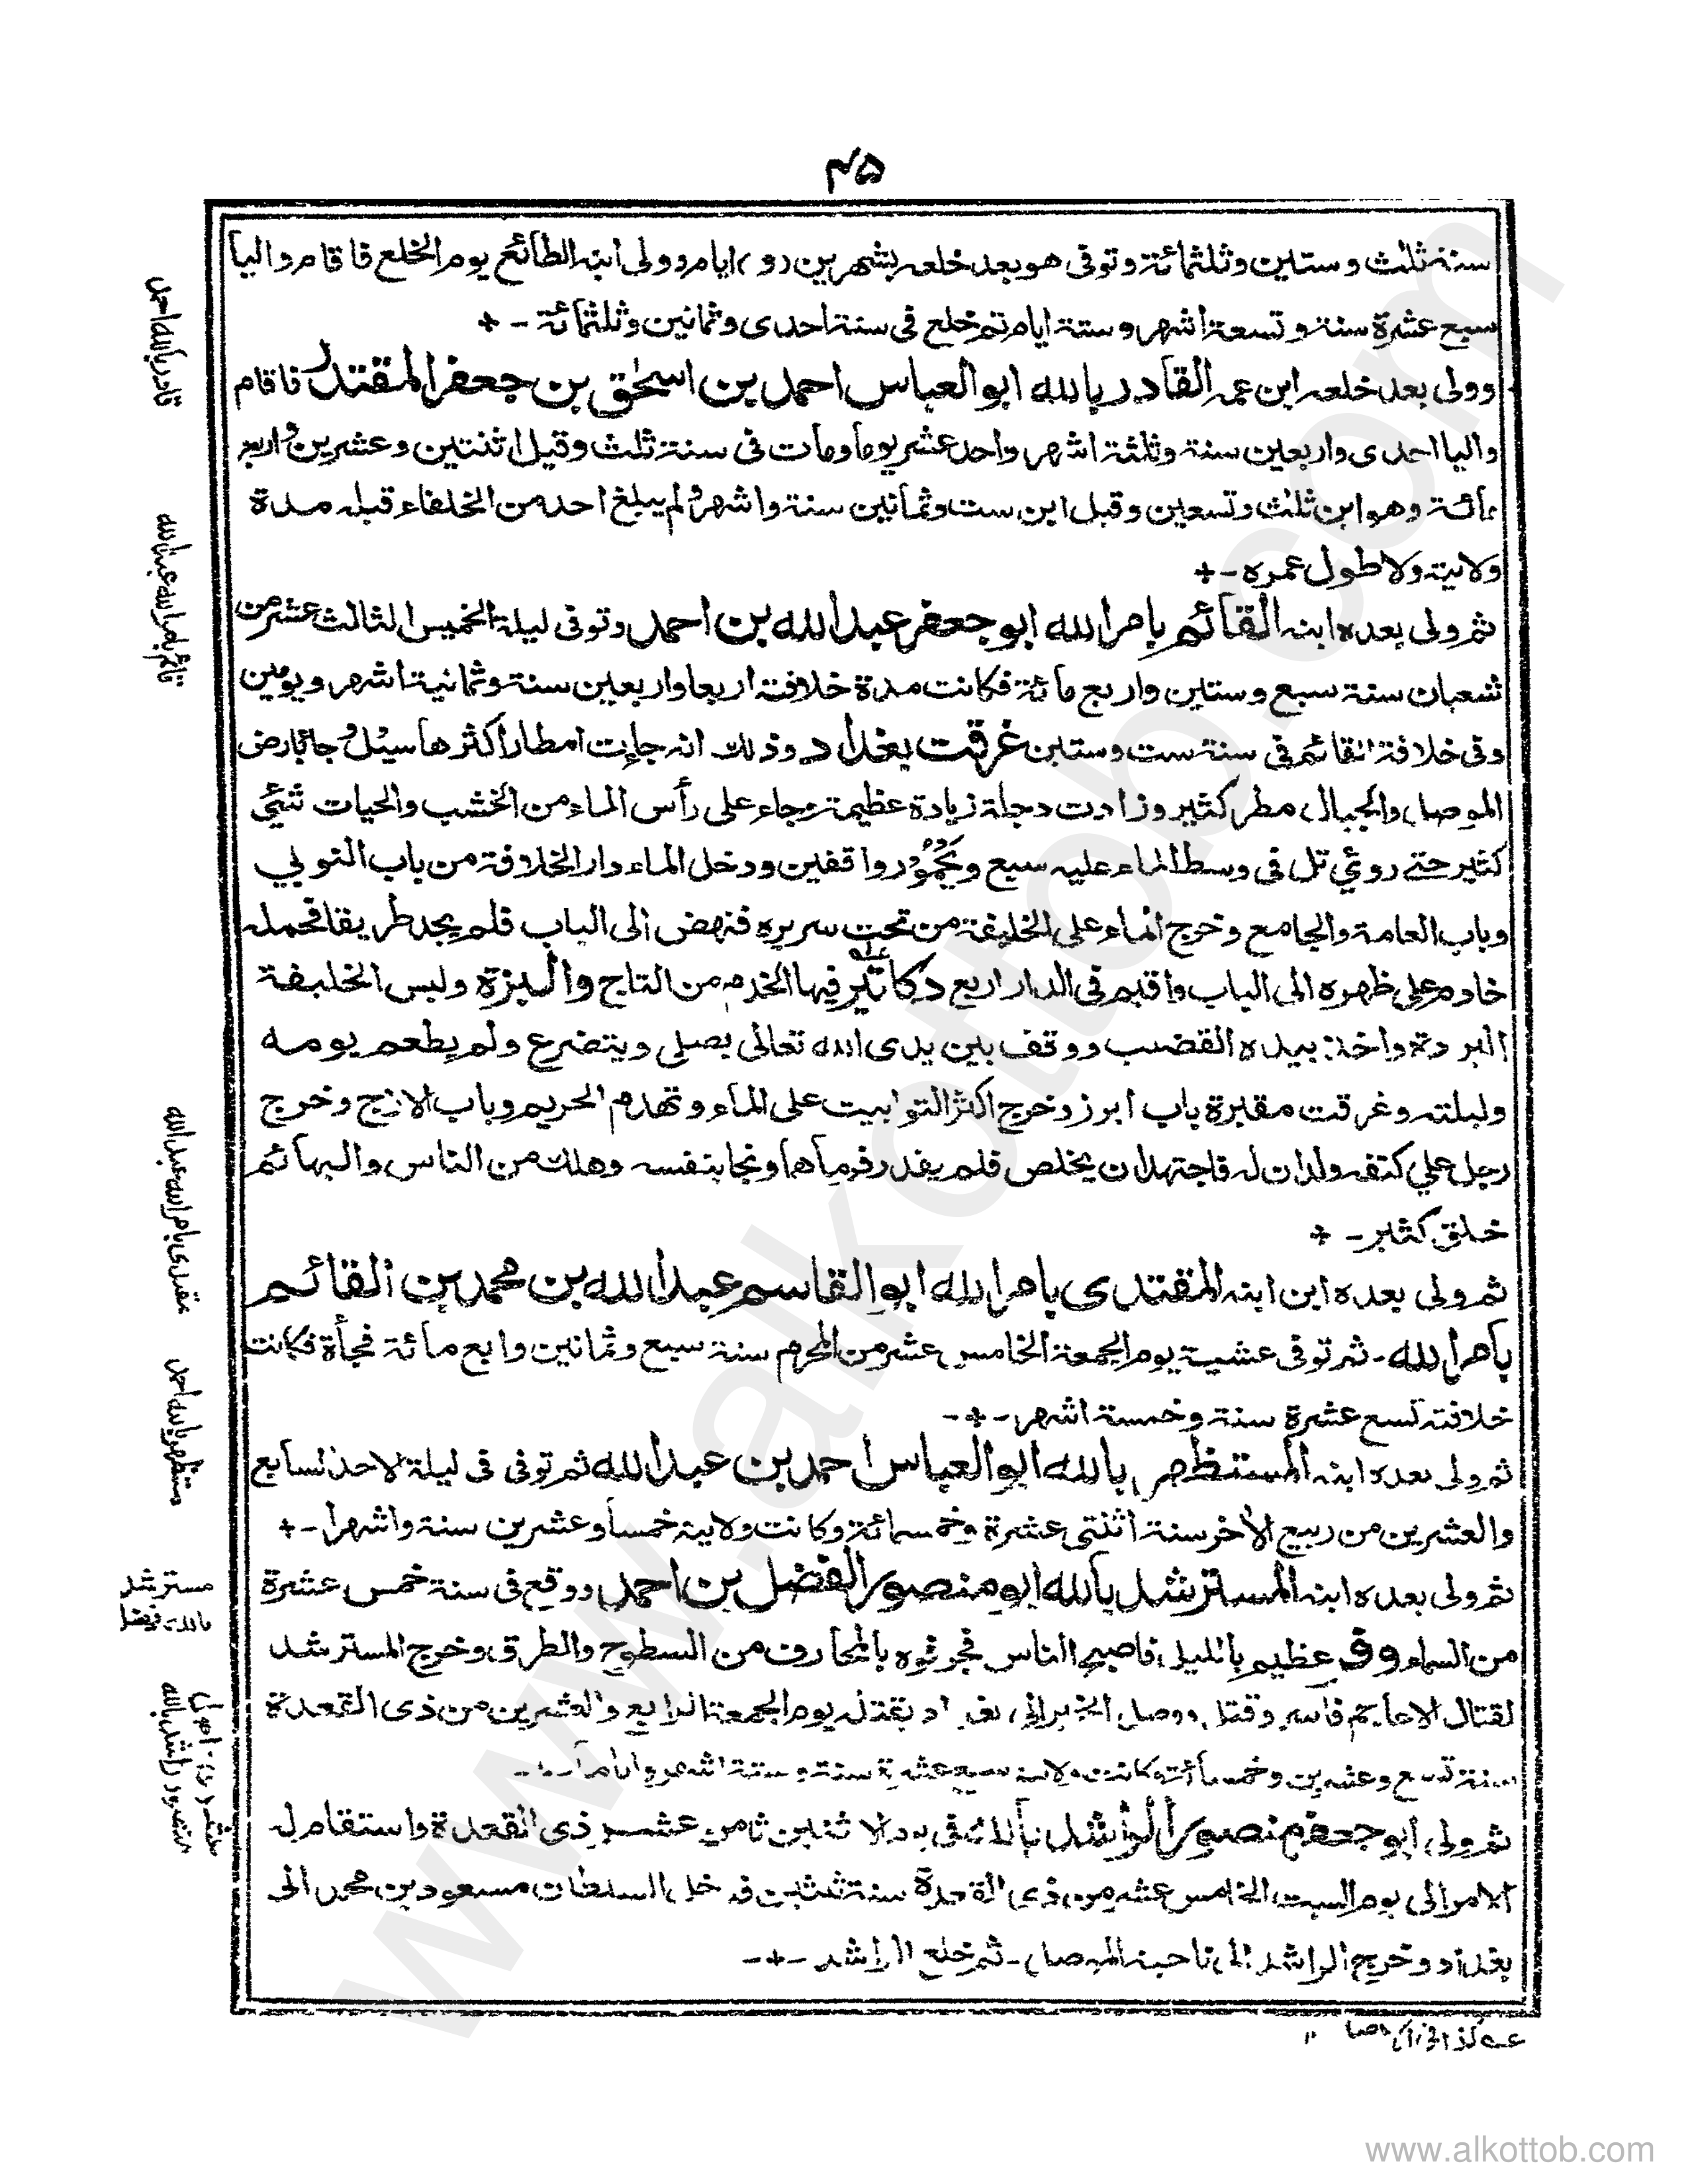 ٤٥
سنة ثلث وستين وثلثمائة وتوفى هو بعد خلعه بشهرين و ايام وولى ابنه الطائع يوم الخلع فاقام واليا
سبع عشرة سنة وتسعة اشهر وستة ايام ثم خلع فى سنة احدى وثمانين وثلثمائة -+
وولى بعد خلعه ابن عمه القادر بالله ابو العباس احمد بن اسحٰق بن جعفر المقتدر فاقام
واليا احدى واربعين سنة وثلثة اشهر واحد عشر يوما ومات فى سنة ثلث وقيل اثنتين وعشرين واربع
مائة وهو ابن ثلث وتسعين وقيل ابن ست وثمانين سنة واشهر ولم يبلغ احد من الخلفاء قبله مدة
ولايته ولا طول عمره -+
ثم ولى بعده ابنه القائم بامر الله ابو جعفر عبد الله بن احمد وتوفى ليلة الخميس الثالث عشر من
شعبان سنة سبع وستين واربع مائة فكانت مدة خلافته اربعا واربعين سنة وثمانية اشهر ويومين
وفى خلافة القائم فى سنة ست وستين غرقت بغداد وذلك انه جاءت امطار اكثرها سيل وجا بارض
الموصل والجبال مطر كثير وزادت دجلة زيادة عظيمة وجاء على رأس الماء من الخشب والحيات شئى
كثير حتے روئي تل فى وسط الماء عليه سبع و يحمور واقفين ودخل الماء دار الخلافة من باب النوبي
وباب العامة والجامع وخرج الماء على الخليفة من تحت سريره فنهض الى الباب فلم يجد طريقا فحمله
خادم على ظهره الى الباب واقيم فى الدار اربع دكاتير فيها الخدم من التاج والبزة ولبس الخليفة
البردة واخذ بيده القضيب ووقف بين يدى الله تعالى يصلى ويتضرع ولم يطعم يومه
وليلته وغرقت مقبرة باب ابرز وخرج اكثر التوابيت على الماء وتهدم الحريم وباب الازج وخرج
رجل على كتفه ولدان له فاجتهد ان يخلص فلم يقدر فرماهما ونجا بنفسه وهلك من الناس والبهائم
خلق كثير -+
ثم ولى بعده ابن ابنه المقتدى بامر الله ابو القاسم عبد الله بن محمد بن القائم
بامر الله - ثم توفى عشية يوم الجمعة الخامس عشر من المحرم سنة سبع وثمانين وابع مائة فجأة فكانت
خلافته تسع عشرة سنة وخمسة اشهر -+-
ثم ولى بعده ابنه المستظهر بالله ابو العباس احمد بن عبد الله ثم توفى فى ليلة الاحد السابع
والعشرين من ربيع الاخر سنة اثنتى عشرة وخمسمائة وكانت ولايته خمسا وعشرين سنة واشهرا -+
ثم ولى بعده ابنه المسترشد بالله ابو منصور الفضل بن احمد ووقع فى سنة خمس عشرة
من السماء وفى عظيم بالليل فاصبح الناس فجرفوه بالمحارف من السطوح والطرق وخرج المسترشد
لقتال الاعاجم فاسر وقتل ووصل الخبر الى بغداد بقتله يوم الجمعة الرابع والعشرين من ذى القعدة
سنة تسع وعشرين وخمسمائة وكانت ولايته سبع عشرة سنة وستة اشهر واياما -+-
ثم ولى ابو جعفر منصور الراشد بالله بقى يوم الاثنين ثامن عشر ذى القعدة واستقام له
الامر الى يوم السبت الخامس عشر من ذى القعدة سنة ثلثين فدخل السلطان مسعود بن محمد الى
بغداد وخرج الراشد الى ناحية الموصل - ثم خلع الراشد -+-
قادر بالله احمد
قائم بامر الله عبد الله
مقتدى بامر الله عبد الله
مستظهر بالله احمد
مسترشد
بالله فضل
منصور راشد بالله
عـه كذا فى الاصل ١٢
www.alkottob.com
www.alkottob.com